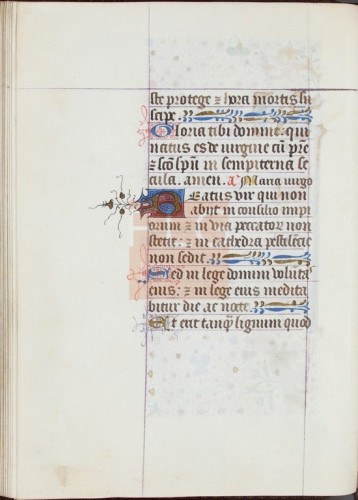 ste protege ⁊ hora mortis su
scipe.
Gloria tibi domine: qui
natus es de virgine cū pr̄e
⁊ sc̄o sp̄u in sempiterna se
cula. amen. a͂. Maria virgo
Beatus vir qui non
abijt in consilio impi
orum ⁊ in via peccator̄ non
stetit: ⁊ in cathedra pestilēcie
non sedit.
Sed in lege domini volūtas
eius: ⁊ in lege eius medita
bitur die ac nocte.
Et erit tanq̄ lignum quod